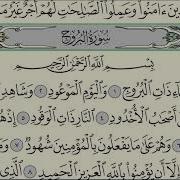 ءَامَنُوا۟ وَعَمِلُوا۟ ٱلصَّـٰلِحَـٰتِ لَهُمْ أَجْرٌ غَيْرُ
سُورَةُ الْبُرُوجِ
بِسْمِ ٱللَّهِ ٱلرَّحْمَـٰنِ ٱلرَّحِيمِ
ذَاتِ ٱلْبُرُوجِ ١ وَٱلْيَوْمِ ٱلْمَوْعُودِ ٢ وَشَاهِدٍ
أَصْحَـٰبُ ٱلْأُخْدُودِ ٤ ٱلنَّارِ ذَاتِ ٱلْوَقُودِ ٥ إِذْ
وَهُمْ عَلَىٰ مَا يَفْعَلُونَ بِٱلْمُؤْمِنِينَ شُهُودٌ ٧ وَمَا
إِلَّآ أَن يُؤْمِنُوا۟ بِٱللَّهِ ٱلْعَزِيزِ ٱلْحَمِيدِ ٨ ٱلَّذِى